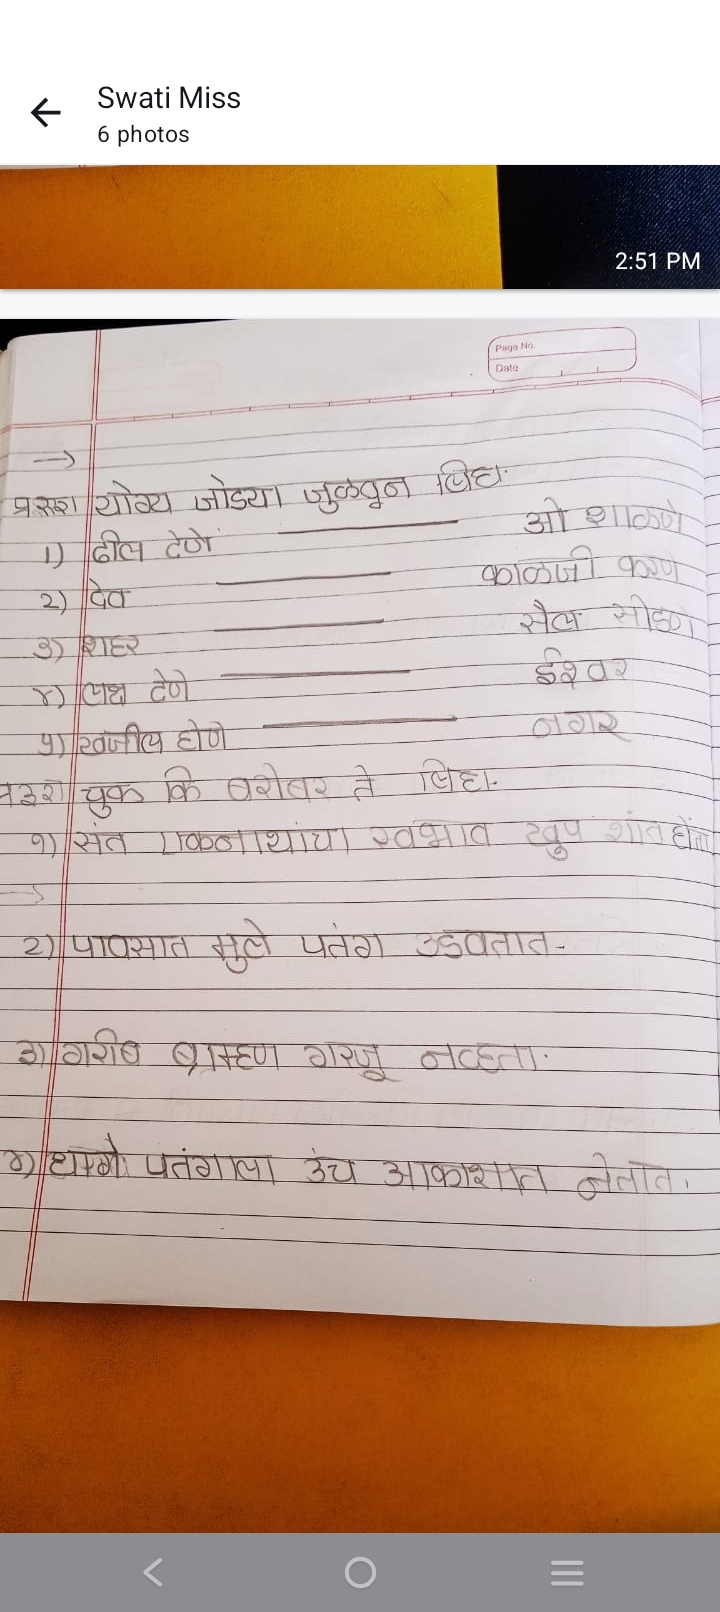 Swati Miss
6 photos
2:51 PM
Page No.
Date
योग्य जोड्या जुळवून लिहा.
1) ढील देणे ओ शाळणे
2) देव काळजी करणे
3) शहर सैल सोडणे
४) लक्ष देणे ईश्वर
५) खजील होणे नगर
चुक कि बरोबर ते लिहा.
१) संत एकनाथांचा स्वभाव खुप शांत होता
2) पावसात मुले पतंग उडवतात-
३) गरीब ब्राम्हण गरजू नव्हता.
४) धागे पतंगाला उंच आकाशात नेतात.